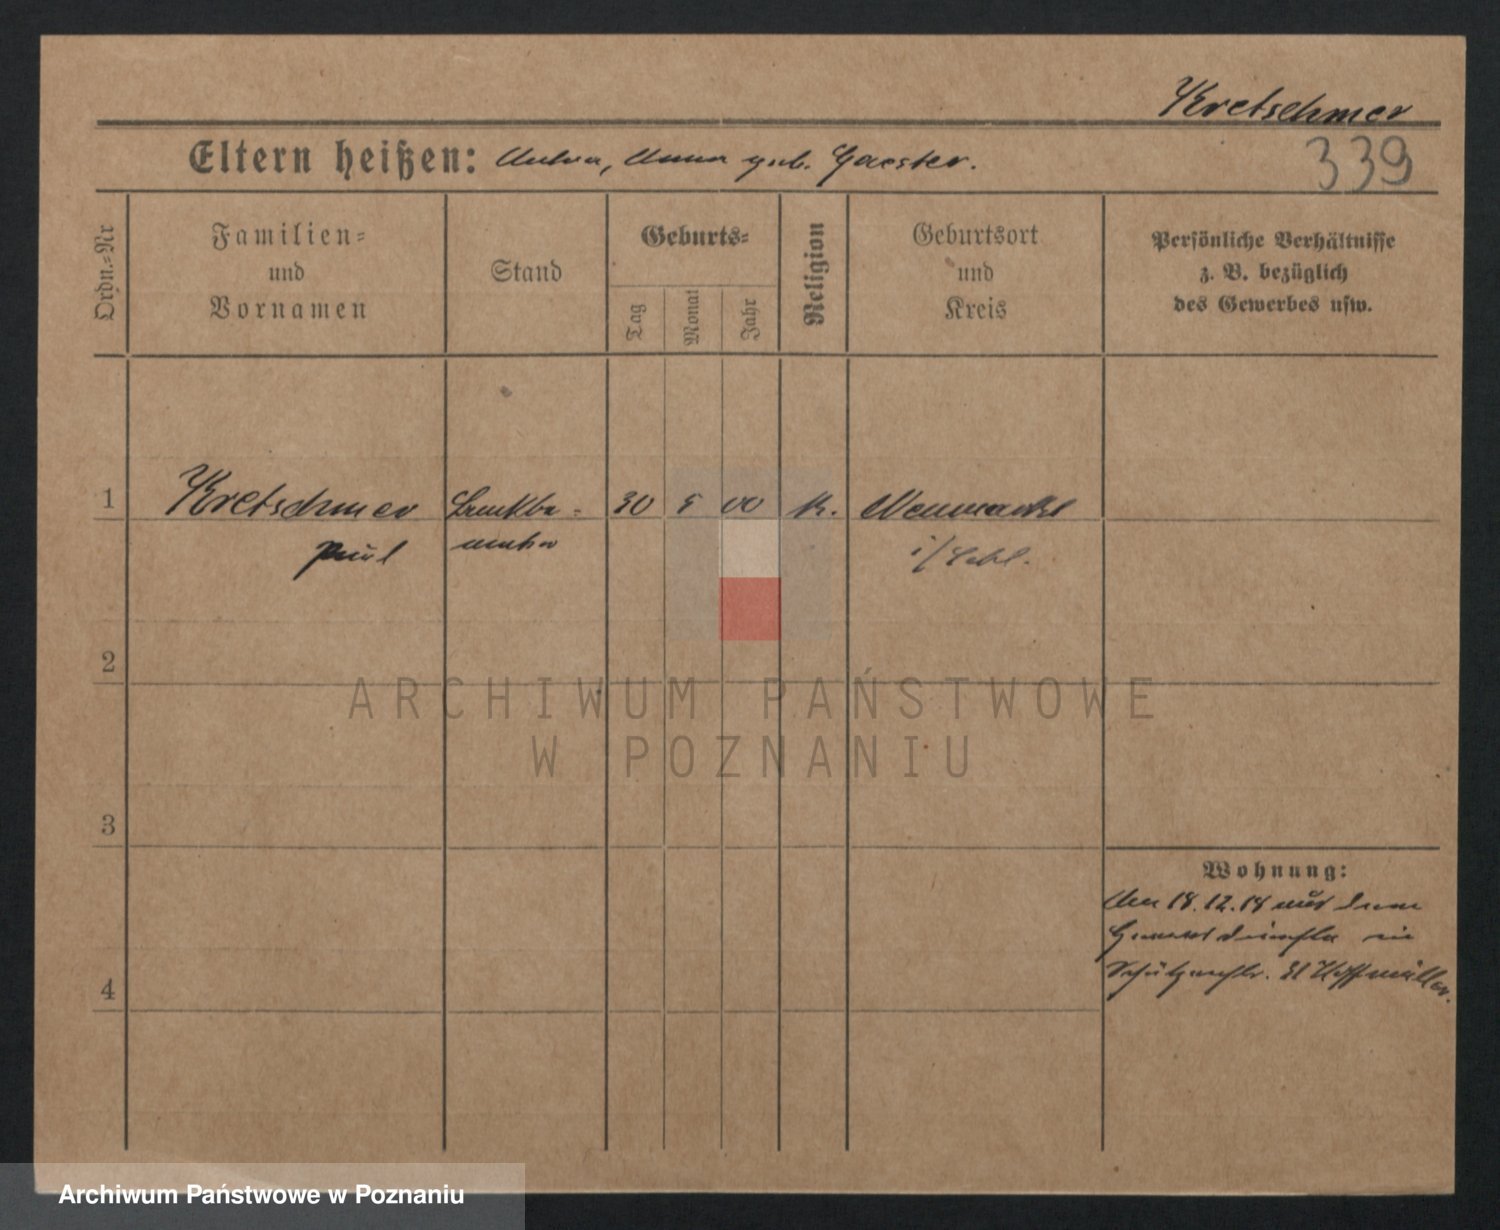 Kretschmer
Eltern heißen: Anna geb.
339
Ordn.-Nr
Familien-
und
Vornamen
Stand
Geburts-
Tag
Monat
Jahr
Religion
Geburtsort
und
Kreis
Persönliche Verhältnisse
z. B. bezüglich
des Gewerbes usw.
1
Kretschmer Bankbe- 30 5 00 K. Neumarkt
Paul amter i/Schl.
2
ARCHIWUM PAŃSTWOWE
W POZNANIU
3
Wohnung:
18.12.18 aus dem
in
4
Archiwum Państwowe w Poznaniu